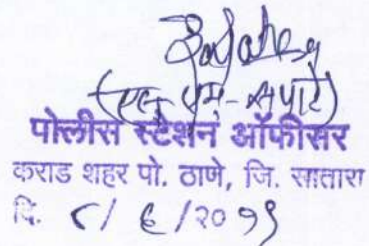 (एन एम-सपाटे)
पोलीस स्टेशन ऑफीसर
कराड शहर पो. ठाणे, जि. सातारा
दि. ८/ ६ /२०१९